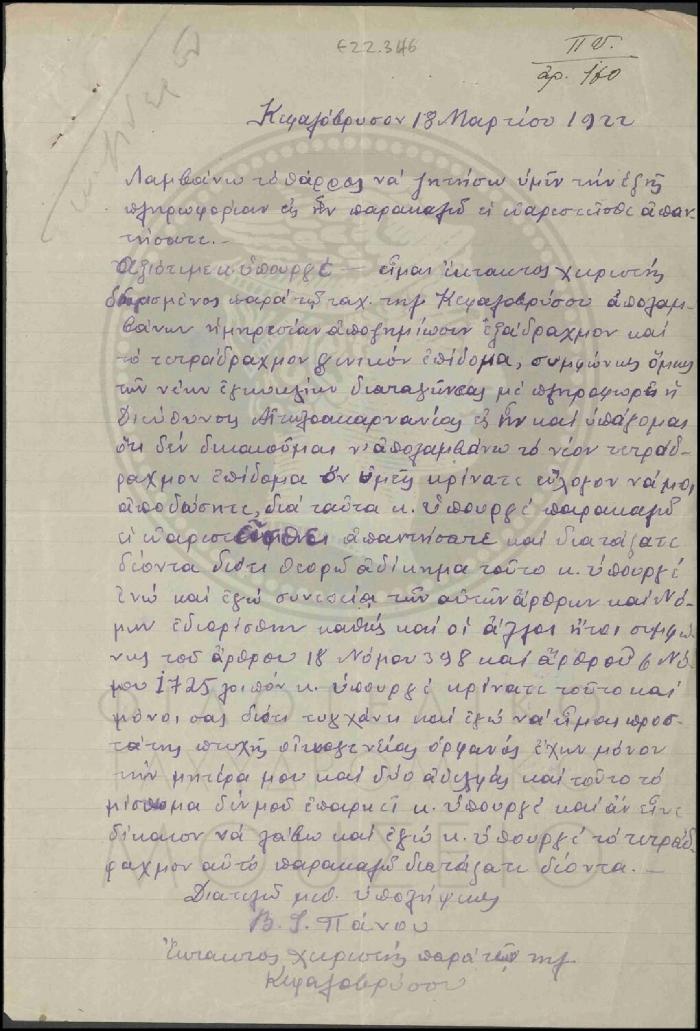 E22.346
Π Υ.
ἀρ. 160
Κεφαλόβρυσον 18 Μαρτίου 1922
Λαμβάνω τὸ θάρρος νὰ ζητήσω ὑμῖν τὴν ἑξῆς
πληρωφορίαν εἰς ἣν παρακαλῶ εὐαρεστεῖσθε ἀπαν-
τήσατε.-
Ἀξιότιμε κ. ὑπουργέ — εἶμαι ἔκτακτος χειριστής
διωρισμένος παρὰ τῷ ταχ. τηλ. Κεφαλοβρύσου ἀπολαμ-
βάνων ἡμηρεσίαν ἀποζημίωσιν ἑξάδραχμον καὶ
τὸ τετράδραχμον γενικόν ἐπίδομα, συμφώνως ὅμως
τῶν νέων ἐγκυκλίων διαταγῶν σας μὲ πληροφορεῖ ἡ
Διεύθυνσις Αἰτωλοακαρνανίας εἰς ἣν καὶ ὑπάγομαι
ὅτι δὲν δικαιοῦμαι ν' ἀπολαμβάνω τὸ νέον τετρά-
δραχμον ἐπίδομα ὃν ὑμεῖς κρίνατε εὔλογον νὰ μοι
ἀποδώσητε, διὰ ταῦτα κ. ὑπουργέ παρακαλῶ
εὐαρεστεῖσθε ἀπαντήσατε καὶ διατάξατε
δέοντα διότι θεορῶ ἀδίκημα τοῦτο κ. ὑπουργέ
ἐνῶ καὶ ἐγώ συνεπείᾳ τῶν αὐτῶν ἄρθρων καὶ Νό-
μων ἐδιορίσθην καθώς καὶ οἱ ἄλλοι ἤτοι συμφώ-
νως τοῦ ἄρθρου 18 Νόμου 398 καὶ ἄρθρου 6 Νό-
μου 1725 λοιπόν κ. ὑπουργέ κρίνατε τοῦτο καὶ
μόνοι σας διότι τυγχάνω καὶ ἐγώ νὰ εἶμαι προσ-
τάτης πτωχῆς οἰκογενείας ὀρφανός ἔχων μόνον
τὴν μητέρα μου καὶ δύο ἀδελφάς καὶ τοῦτο τὸ
δέν μοῦ ἐπαρκεῖ κ. ὑπουργέ καὶ ἄν εἶνε
δίκαιον νὰ λάβω καὶ ἐγώ κ. ὑπουργέ τὸ τετρά-
δραχμον αὐτό παρακαλῶ διατάξατε δέοντα. -
Διατελῶ μεθ. ὑπολήψεως
Β. Γ. Πάνου
Ἔκτακτος χειριστής παρὰ τῷ τηλ
Κεφαλοβρύσου
ΦΙΛΟΤΕΛΙΚΟ
ΤΑΧΥΔΡΟΜΙΚΟ
ΜΟΥΣΕΙΟ